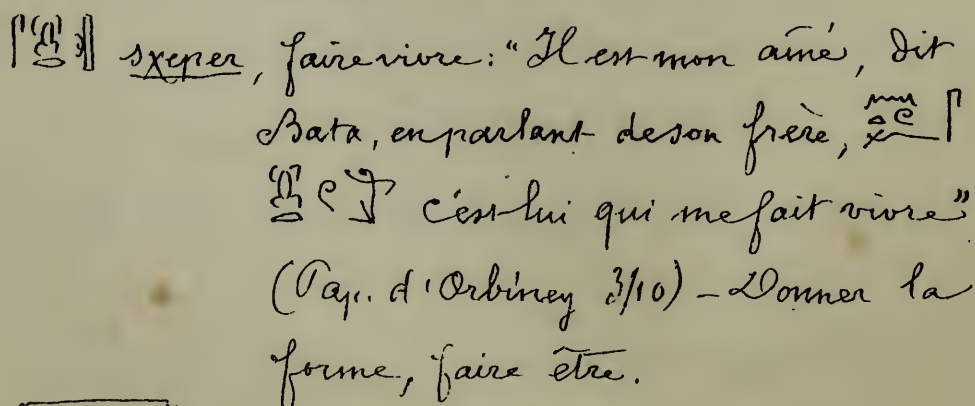 𓋴𓆣𓂋 sχeper, faire vivre: "Il est mon aîné, dit
Bata, en parlant de son frère,
c'est lui qui me fait vivre"
(Pap. d'Orbiney 3/10) – Donner la
forme, faire être.